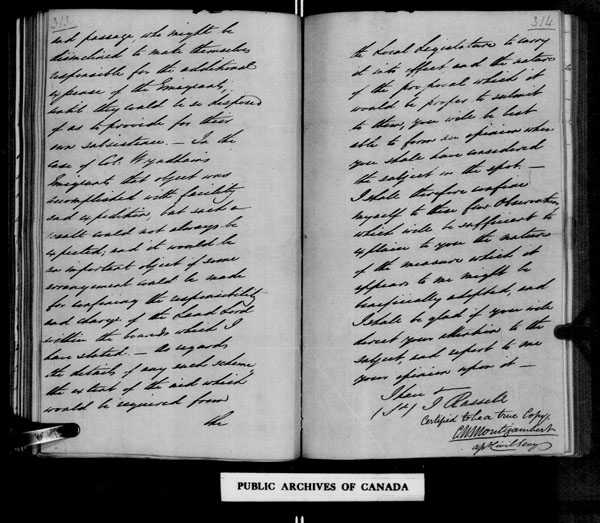 313
and passage, who might be
disinclined to make themselves
responsible for the additional
expense of the Emigrants,
until they could be so disposed
of as to provide for their
own subsistence. — In the
case of Col. Wyndham's
Emigrants that object was
accomplished with facility
and expedition, but such a
result could not always be
expected, and it would be
an important object if some
arrangement could be made
for confining the responsibility
and charge of the Land Lord
within the bounds which I
have stated. — As regards
the details of any such scheme
the extent of the aid which
would be required from
the
314
the Local Legislature to carry
it into effect and the nature
of the proposal which it
would be proper to submit
to them, you will be best
able to form an opinion when
you shall have considered
the subject on the spot. —
I shall therefore confine
myself to these few Observations,
which will be sufficient to
explain to you the nature
of the measure which it
appears to me might be
beneficially adopted, and
I shall be glad if you will
direct your attention to the
subject, and report to me
your opinion upon it —
I have &c
J Russell
Certified to be a true Copy,
Montizambert
PUBLIC ARCHIVES OF CANADA